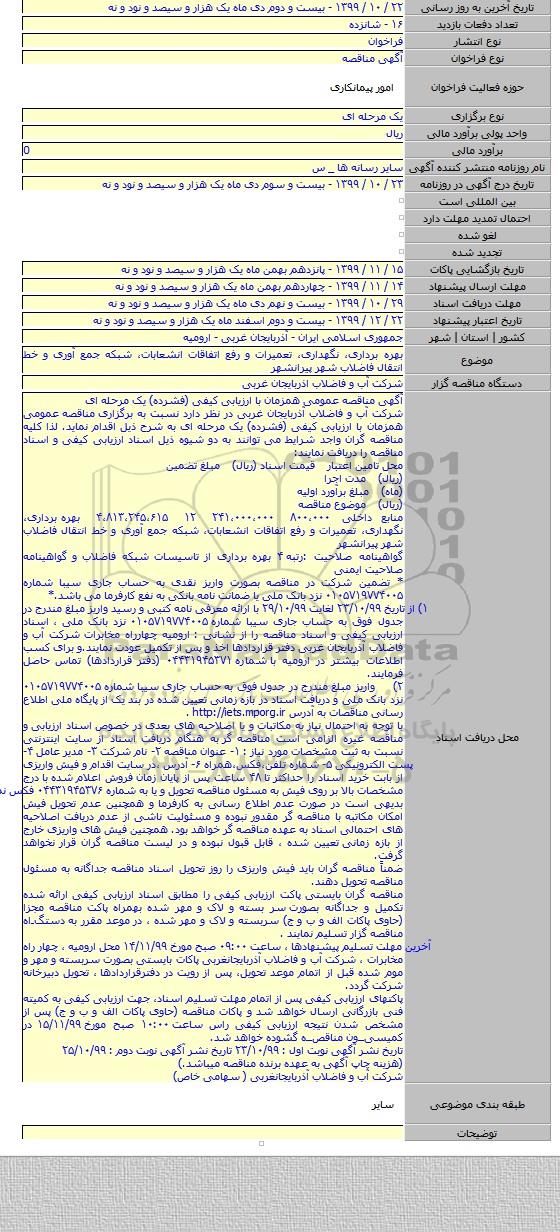 تاریخ آخرین به روز رسانی ۲۲ / ۱۰ / ۱۳۹۹ - بیست و دوم دی ماه یک هزار و سیصد و نود و نه
تعداد دفعات بازدید ۱۶ - شانزده
نوع انتشار فراخوان
نوع فراخوان آگهی مناقصه
حوزه فعالیت فراخوان امور پیمانکاری
نوع برگزاری یک مرحله ای
واحد پولی برآورد مالی ریال
برآورد مالی 0
نام روزنامه منتشر کننده آگهی سایر رسانه ها _ س
تاریخ درج آگهی در روزنامه ۲۳ / ۱۰ / ۱۳۹۹ - بیست و سوم دی ماه یک هزار و سیصد و نود و نه
بین المللی است
احتمال تمدید مهلت دارد
لغو شده
تجدید شده
تاریخ بازگشایی پاکات ۱۵ / ۱۱ / ۱۳۹۹ - پانزدهم بهمن ماه یک هزار و سیصد و نود و نه
مهلت ارسال پیشنهاد ۱۴ / ۱۱ / ۱۳۹۹ - چهاردهم بهمن ماه یک هزار و سیصد و نود و نه
مهلت دریافت اسناد ۲۹ / ۱۰ / ۱۳۹۹ - بیست و نهم دی ماه یک هزار و سیصد و نود و نه
تاریخ اعتبار پیشنهاد ۲۲ / ۱۲ / ۱۳۹۹ - بیست و دوم اسفند ماه یک هزار و سیصد و نود و نه
کشور | استان | شهر جمهوری اسلامی ایران - آذربایجان غربی - ارومیه
موضوع بهره برداری، نگهداری، تعمیرات و رفع اتفاقات انشعابات، شبکه جمع آوری و خط
انتقال فاضلاب شهر پیرانشهر
دستگاه مناقصه گزار شرکت آب و فاضلاب آذربایجان غربی
محل دریافت اسناد
آگهی مناقصه عمومی همزمان با ارزیابی کیفی (فشرده) یک مرحله ای
شرکت آب و فاضلاب آذربایجان غربی در نظر دارد نسبت به برگزاری مناقصه عمومی
همزمان با ارزیابی کیفی (فشرده) یک مرحله ای به شرح ذیل اقدام نماید. لذا کلیه
مناقصه گران واجد شرایط می توانند به دو شیوه ذیل اسناد ارزیابی کیفی و اسناد
مناقصه را دریافت نمایند:
محل تامین اعتبار قیمت اسناد (ریال) مبلغ تضمین
(ریال) مدت اجرا
(ماه) مبلغ برآورد اولیه
(ریال) موضوع مناقصه
منابع داخلی ۸۰۰,۰۰۰ ۲۴۱,۰۰۰,۰۰۰ ۱۲ ۴,۸۱۳,۲۴۵,۶۱۵ بهره برداری،
نگهداری، تعمیرات و رفع اتفاقات انشعابات، شبکه جمع آوری و خط انتقال فاضلاب
شهر پیرانشهر
گواهینامه صلاحیت :رتبه ۴ بهره برداری از تاسیسات شبکه فاضلاب و گواهینامه
صلاحیت ایمنی
* تضمین شرکت در مناقصه بصورت واریز نقدی به حساب جاری سیبا شماره
۰۱۰۵۷۱۹۷۷۴۰۰۵ نزد بانک ملی یا ضمانت نامه بانکی به نفع کارفرما می باشد.*
۱) از تاریخ ۲۳/۱۰/۹۹ لغایت ۲۹/۱۰/۹۹ با ارائه معرفی نامه کتبی و رسید واریز مبلغ مندرج در
جدول فوق به حساب جاری سیبا شماره ۰۱۰۵۷۱۹۷۷۴۰۰۵ نزد بانک ملی ، اسناد
ارزیابی کیفی و اسناد مناقصه را از نشانی : ارومیه چهارراه مخابرات شرکت آب و
فاضلاب آذربایجان غربی دفتر قراردادها اخذ و پس از تکمیل عودت نمایند.و برای کسب
اطلاعات بیشتر در ارومیه با شماره ۰۴۴۳۱۹۴۵۳۷۱ (دفتر قراردادها) تماس حاصل
فرمایند.
۲) واریز مبلغ مندرج در جدول فوق به حساب جاری سیبا شماره ۰۱۰۵۷۱۹۷۷۴۰۰۵
نزد بانک ملی و دریافت اسناد در بازه زمانی تعیین شده در بند یک از پایگاه ملی اطلاع
رسانی مناقصات به آدرس http://iets.mporg.ir .
با توجه به احتمال نیاز به مکاتبات و یا اصلاحیه های بعدی در خصوص اسناد ارزیابی و
مناقصه غیره الزامی است مناقصه گر به هنگام دریافت اسناد از سایت اینترنتی
نسبت به ثبت مشخصات مورد نیاز : ۱- عنوان مناقصه ۲- نام شرکت ۳- مدیر عامل ۴-
پست الکترونیکی ۵- شماره تلفن،فکس،همراه ۶- آدرس ،در سایت اقدام و فیش واریزی
از بابت خرید اسناد را حداکثر تا ۴۸ ساعت پس از پایان زمان فروش اعلام شده با درج
مشخصات بالا بر روی فیش به مسئول مناقصه تحویل و یا به شماره ۰۴۴۳۱۹۴۵۳۷۶ فکس
بدیهی است در صورت عدم اطلاع رسانی به کارفرما و همچنین عدم تحویل فیش
امکان مکاتبه با مناقصه گر مقدور نبوده و مسئولیت ناشی از عدم دریافت اصلاحیه
های احتمالی اسناد به عهده مناقصه گر خواهد بود. همچنین فیش های واریزی خارج
از بازه زمانی تعیین شده ، قابل قبول نبوده و در لیست مناقصه گران قرار نخواهد
گرفت.
ضمناً مناقصه گران باید فیش واریزی را روز تحویل اسناد مناقصه جداگانه به مسئول
مناقصه تحویل دهند.
مناقصه گران بایستی پاکت ارزیابی کیفی را مطابق اسناد ارزیابی کیفی ارائه شده
تکمیل و جداگانه بصورت سر بسته و لاک و مهر شده بهمراه پاکت مناقصه مجزا
(حاوی پاکات الف و ب و ج) سربسته و لاک و مهر شده ، در موعد مقرر به دستگاه
مناقصه گزار تسلیم نمایند .
آخرین مهلت تسلیم پیشنهادها ، ساعت ۰۹:۰۰ صبح مورخ ۱۴/۱۱/۹۹ محل ارومیه ، چهار راه
مخابرات ، شرکت آب و فاضلاب آذربایجانغربی پاکات بایستی بصورت سربسته و مهر و
موم شده قبل از اتمام موعد تحویل، پس از رویت در دفترقراردادها ، تحویل دبیرخانه
شرکت گردد.
پاکتهای ارزیابی کیفی پس از اتمام مهلت تسلیم اسناد، جهت ارزیابی کیفی به کمیته
فنی بازرگانی ارسال خواهد شد و پاکات مناقصه (حاوی پاکات الف و ب و ج) پس از
مشخص شدن نتیجه ارزیابی کیفی راس ساعت ۱۰:۰۰ صبح مورخ ۱۵/۱۱/۹۹ در
کمیسیــون مناقصــه گشوده خواهد شد.
تاریخ نشر آگهی نوبت اول : ۲۳/۱۰/۹۹ تاریخ نشر آگهی نوبت دوم : ۲۵/۱۰/۹۹
(هزینه چاپ آگهی به عهده برنده مناقصه میباشد.)
شرکت آب و فاضلاب آذربایجانغربی ( سهامی خاص)
طبقه بندی موضوعی سایر
توضیحات